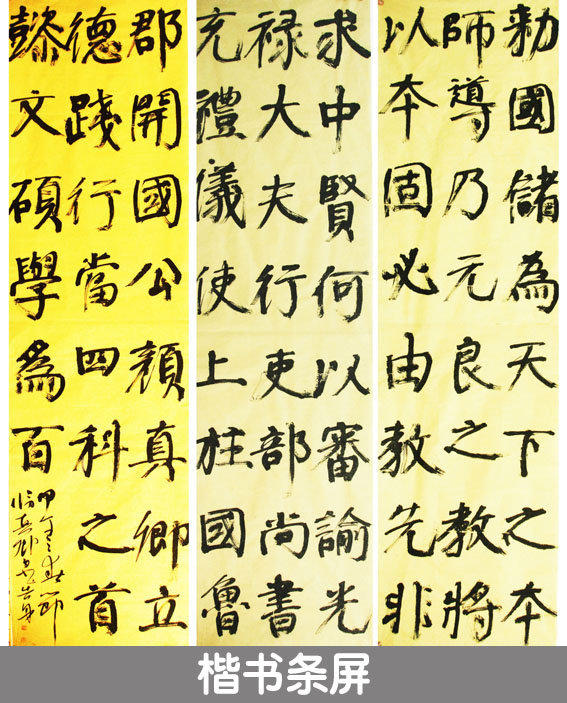 勅國儲為天下之本
師導乃元良之教將
以本固必由教先非
求中賢何以審諭光
禄大夫行吏部尚書
充禮儀使上柱國魯
郡開國公顏真卿立
德踐行當四科之首
懿文碩學爲百
楷书条屏